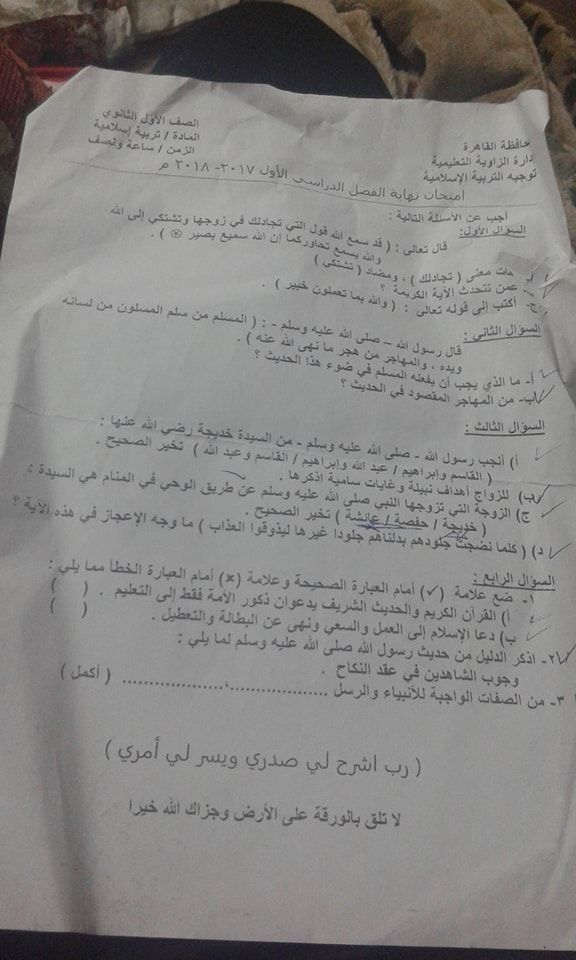 محافظة القاهرة
إدارة الزاوية التعليمية
توجيه التربية الإسلامية
الصف الأول الثانوي
المادة / تربية إسلامية
الزمن / ساعة ونصف
امتحان نهاية الفصل الدراسي الأول ٢٠١٧- ٢٠١٨ م
أجب عن الأسئلة التالية :
السؤال الأول:
قال تعالى : ( قد سمع الله قول التي تجادلك في زوجها وتشتكي إلى الله
والله يسمع تحاوركما إن الله سميع بصير ) .
أ- هات معنى ( تجادلك ) ، ومضاد ( تشتكي )
ب- عمن تتحدث الآية الكريمة ؟
ج- أكتب إلى قوله تعالى : ( والله بما تعملون خبير ) .
السؤال الثاني :
قال رسول الله – صلى الله عليه وسلم - : ( المسلم من سلم المسلون من لسانه
ويده ، والمهاجر من هجر ما نهى الله عنه ) .
أ- ما الذي يجب أن يفعله المسلم في ضوء هذا الحديث ؟
ب- من المهاجر المقصود في الحديث ؟
السؤال الثالث :
أ) أنجب رسول الله - صلى الله عليه وسلم - من السيدة خديجة رضي الله عنها :
( القاسم وإبراهيم / عبد الله وإبراهيم / القاسم وعبد الله ) تخير الصحيح .
ب) للزواج أهداف نبيلة وغايات سامية اذكرها .
ج) الزوجة التي تزوجها النبي صلى الله عليه وسلم عن طريق الوحي في المنام هي السيدة :
( خديجة / حفصة / عائشة ) تخير الصحيح .
د) ( كلما نضجت جلودهم بدلناهم جلودا غيرها ليذوقوا العذاب ) ما وجه الإعجاز في هذه الآية ؟
السؤال الرابع :
١- ضع علامة (✓) أمام العبارة الصحيحة وعلامة (×) أمام العبارة الخطأ مما يلي :
أ) القرآن الكريم والحديث الشريف يدعوان ذكور الأمة فقط إلى التعليم . ( )
ب) دعا الإسلام إلى العمل والسعي ونهى عن البطالة والتعطيل . ( )
٢- اذكر الدليل من حديث رسول الله صلى الله عليه وسلم لما يلي :
وجوب الشاهدين في عقد النكاح .
٣- من الصفات الواجبة للأنبياء والرسل ..................،.................. ( أكمل )
( رب اشرح لي صدري ويسر لي أمري )
لا تلق بالورقة على الأرض وجزاك الله خيرا